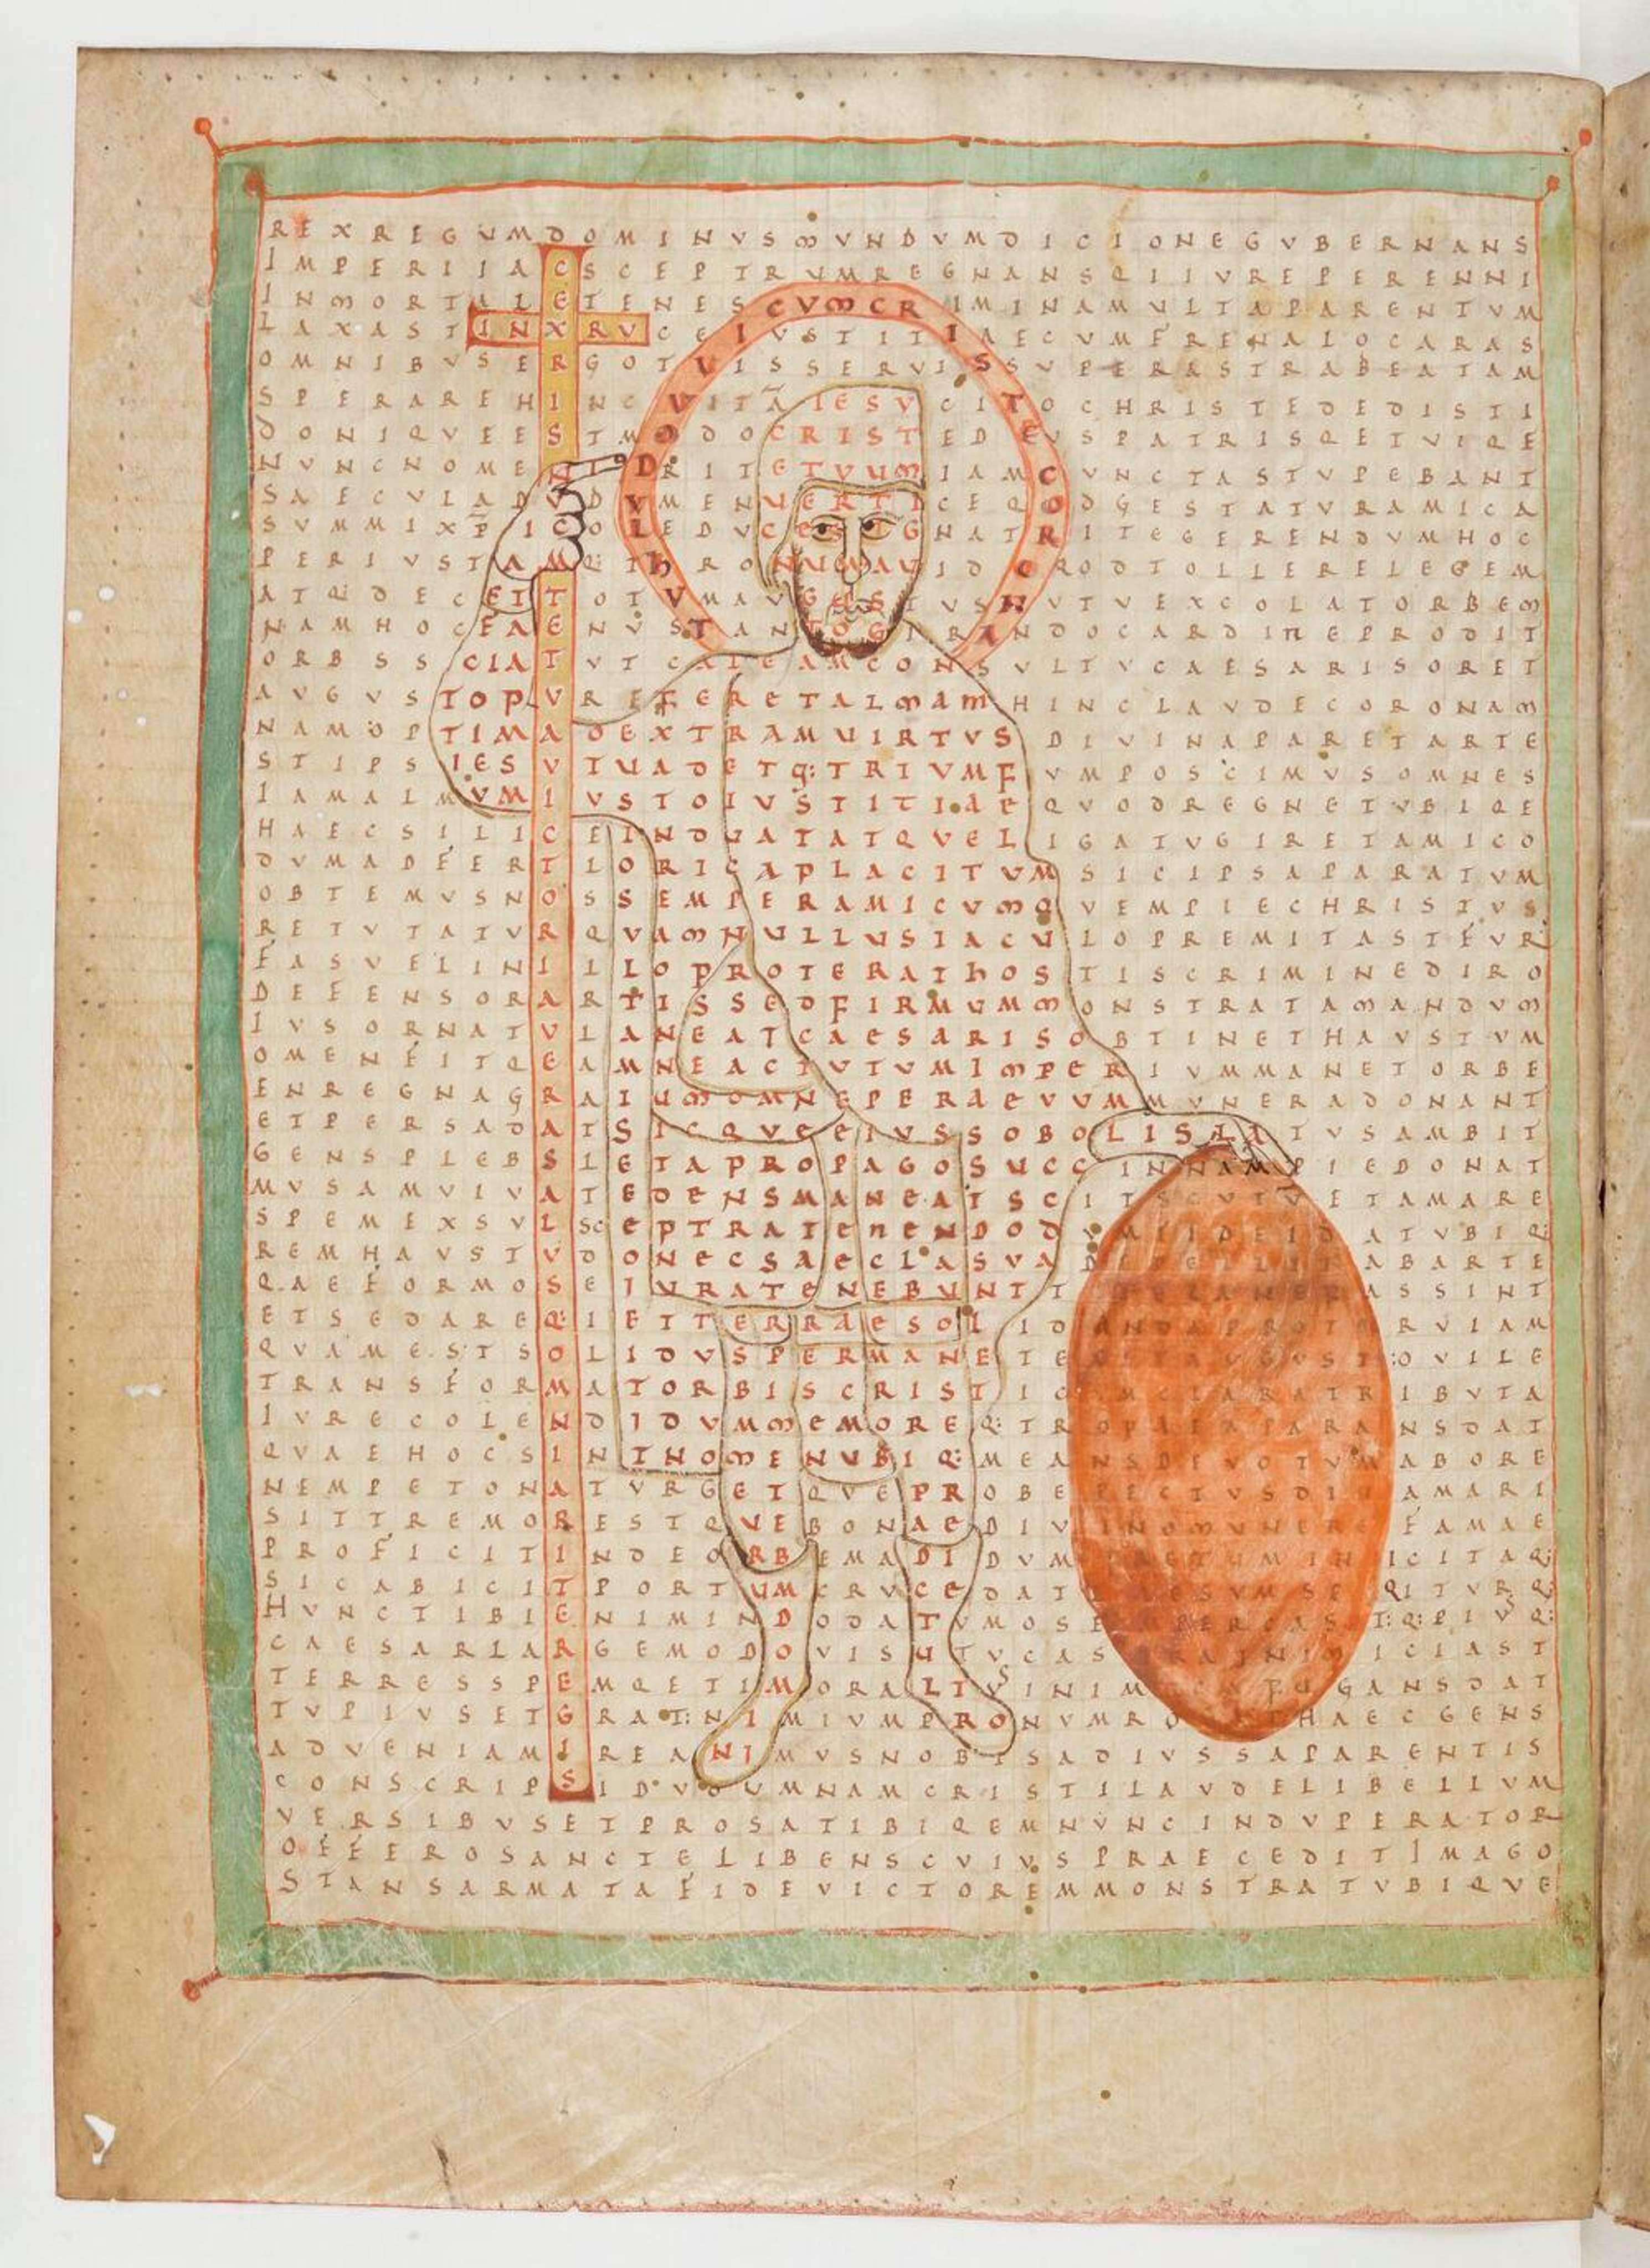 REXREGUMDOMINVSMVNDVMDICIONEGVBERNANS
IMPERIIIACSCEPTRVMREGNANSQIIVREPERENNI
INMORTALETENESCVMCRIMINAMVLTAPARENTVM
LAXASTINXRVCEIVSTITIAECVMFRENALOCARAS
OMNIBVSERGOTVISSERVISSVPERASTRABEATAM
SPERAREHINCVITĀIESVCITOCHRISTEDEDISTI
DONIQVEESTMODOCRISTEDEVSPATRISQETVIQE
NVNCNOMENTDRITETVUMIAMCVNCTASTVPEBANT
SAECVLADVDVMENVERTICEQODGESTATVRAMICA
SVMMIXP̄ICOLEDVCESIGNATRITEGERENDVMHOC
PERIVSTAMQ:THRONUMAVIDCRODTOLLERELEGEM
ATQ:DECEITTOTVMAVGUSTVSNVTVEXCOLATORBEM
NAMHOCEAENVSTANTOGIRANDOCARDINEPRODIT
ORBSSCIATVTCATEAMCONSVLTVCAESARISORET
AVGVSTOPVREFERETALMAMHINCLAVDECORONAM
NAMOPTIMADEXTRAMUIRTVSDIVINAPARETARTE
STIPSIESVTUADETQ:TRIVMFVMPOSCIMVSOMNES
IAMALMVMIVSTOIVSTITIAEQVODREGNETVBIQE
HAECSILICEINDUATATQVELIGATVGIRETAMICO
DVMADFERTLORICAPLACITVMSICIPSAPARATVM
OBTEMVSNOSSEMPERAMICVMQVEMPIECHRISTVS
RETVTATVRQVAMNULLUSIACULOPREMITASTFVR
FASVELINILLOPROTERATHOSTISCRIMINEDIRO
DEFENSORARTISSEDFIRMUMMONSTRATAMANDVM
IVSORNATVLANEATCAESARISOBTINETHAVSTVM
OMENFITQEAMNEACTVTUMIMPERIVMMANETORBE
ENREGNAGRAIUMOMNEPERAEVVMMVNERADONANT
ETPERSADATSICQVEEIVSSOBOLISLATVSAMBIT
GENSPLEBSLETAPROPAGOSUCCINNAMPIEDONAT
MVSAMVIVATEDENSMANEATSCITSCVTVETAMARE
SPEMEXSVLSCEPTRATENENDODVMFIDEIDATVBIQ:
REMHAVSTVDONECSAECLASVADIPELLITABARTE
QAEFORMOSEIVRATENEBUNTTELANEFASSINT
ETSEDAREQ:IETTERRAESOLIDANDAPROTERVIAM
QVAMESTSOLIDVSPERMANETEVITAVGVSTOVILE
TRANSFORMATORBISCRISTICVMCLARATRIBVTA
IVRECOLENDIDVMMEMOREQ:TROPAEAPARANSDAT
QVAEHOCSINTNOMENUBIQ:MEANSDEVOTVMABORE
NEMPETONATVRGETQVEPROBEPECTVSDIVAMARI
SITTREMORESTQVEBONAEDIVINOMVNEREFAMAE
PROFICITINDEORBEMADIDVMPRETVMINICITAQ:
SICABICITPORTUMCRVCEDATLAESVMSPQITVRQ:
HVNCTIBIENIMINDODATVMOSEMPERCAST:Q:PIVSQ:
CAESARLARGEMODOVISUTVCASTRAINIMICIAST
TERRESSPEMQETIMORALTVSINIMICVMFUGANSDAT
TVPIVSETGRAT:NIMIVMPRONVMROSTHAECGENS
ADVENIAMIREANIMVSNOBISADIVSSAPARENTIS
CONSCRIPSIDVDVMNAMCRISTILAVDELIBELLVM
VERSIBVSETPROSATIBIQEMNVNCINDVPERATOR
OFFEROSANCTELIBENSCVIVSPRAECEDITIMAGO
STANSARMATAFIDEVICTOREMMONSTRATVBIQVE